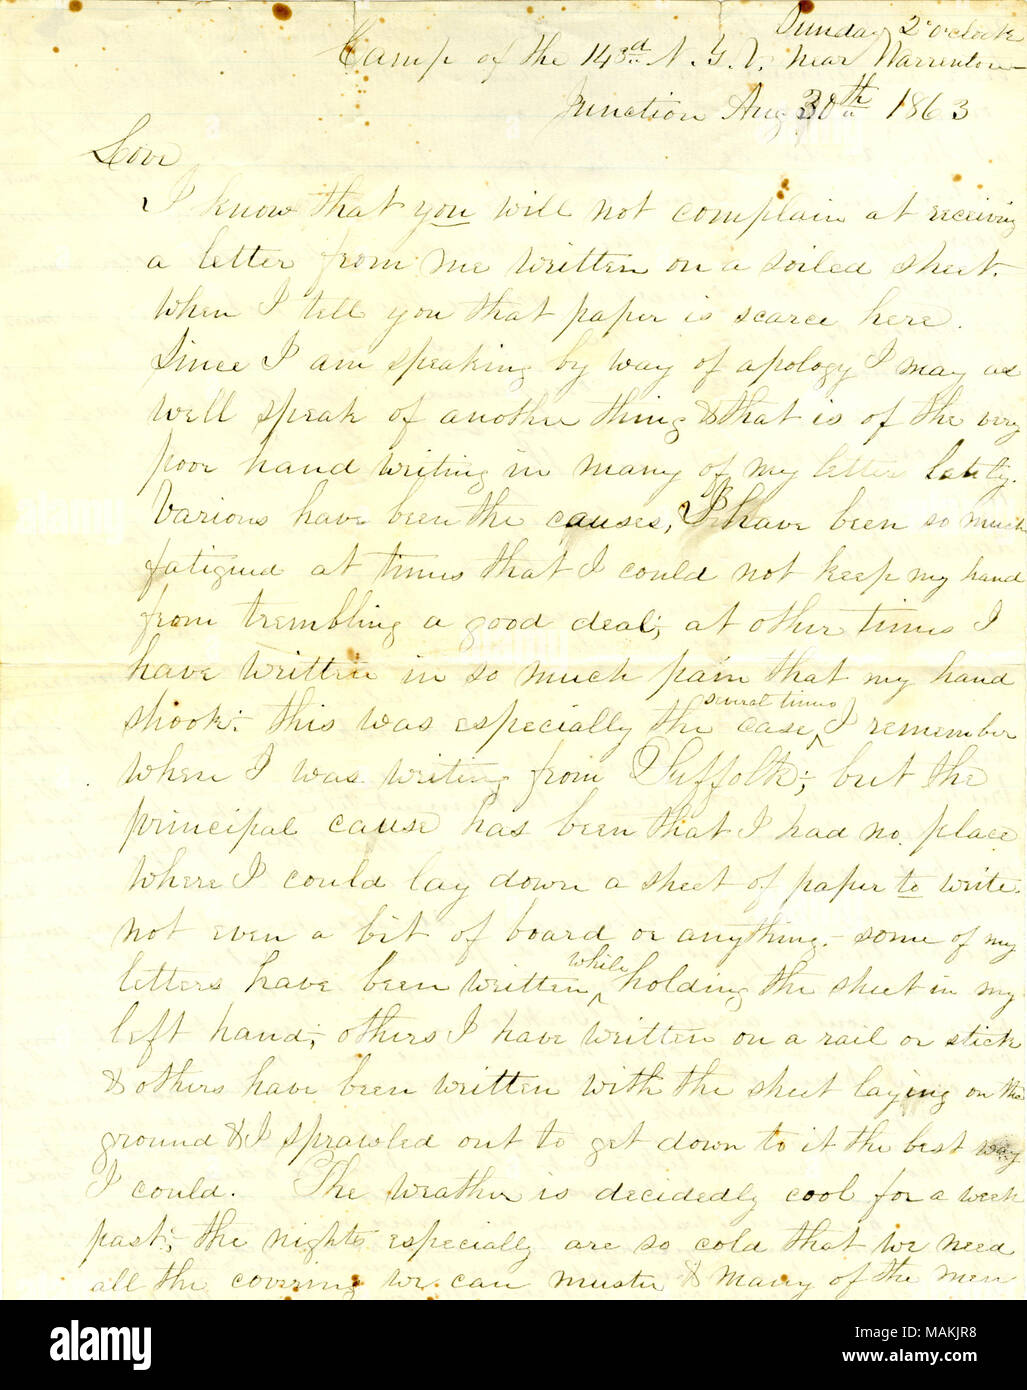 Sunday 2 o'clock
Camp of the 143d N.Y.V. near Warrenton
Junction Aug 30th 1863
Love
I know that you will not complain at receiving
a letter from me written on a soiled sheet.
when I tell you that paper is scarce here.
Since I am speaking by way of apology I may as
well speak of another thing & that is of the very
poor hand writing in many of my letters lately.
Various have been the causes, I have been so much
fatigued at times that I could not keep my hand
from trembling a good deal; at other times I
have written in so much pain that my hand
shook;- this was especially the case several times I remember
when I was writing from Suffolk;- but the
principal cause has been that I had no place
where I could lay down a sheet of paper to write.
not even a bit of board or anything.- some of my
letters have been written while holding the sheet in my
left hand;- others I have written on a rail or stick
& others have been written with the sheet laying on the
ground & I sprawled out to get down to it the best way
I could. The weather is decidedly cool for a week
past;- the nights especially are so cold that we need
all the covering we can muster & many of the men
alamy
Image ID: MAKJR8
www.alamy.com